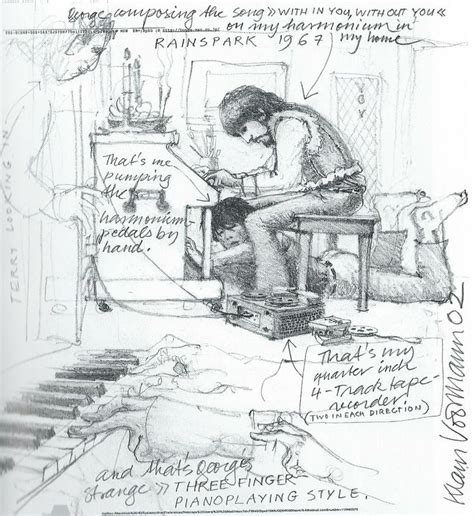 George composing the song » WITH IN YOU, WITH OUT YOU «
on my harmonium in
RAINSPARK 1967 my home
VOY
That's me
pumping
the
harmonium-
pedals by
hand.
TERRY LOOKING IN
That's my
quarter inch
4-Track tape-
recorder.
(TWO IN EACH DIRECTION)
Klaus Voormann 02
and that's Georges
strange » THREE FINGER
PIANOPLAYING STYLE.